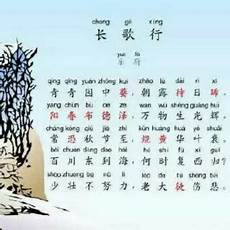 cháng gē xíng
长歌行
yuè fǔ
乐府
qīng qīng yuán zhōng kuí zhāo lù dài rì xī
青青园中葵，朝露待日晞。
yáng chūn bù dé zé wàn wù shēng guāng huī
阳春布德泽，万物生光辉。
cháng kǒng qiū jié zhì kūn huáng huā yè shuāi
常恐秋节至，焜黄华叶衰。
bǎi chuān dōng dào hǎi hé shí fù xī guī
百川东到海，何时复西归？
shào zhuàng bù nǔ lì lǎo dà tú shāng bēi
少壮不努力，老大徒伤悲。